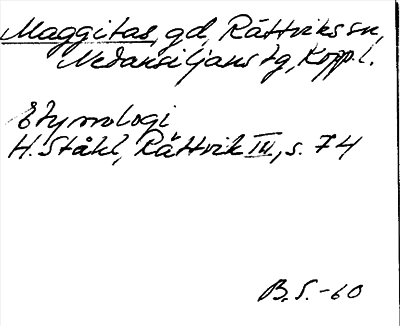 Maggitas, gd, Rättviks sn,
Nedansiljans tg, Kopp. l.
Etymologi
H. Ståhl, Rättvik III, s. 74
B.S.-60